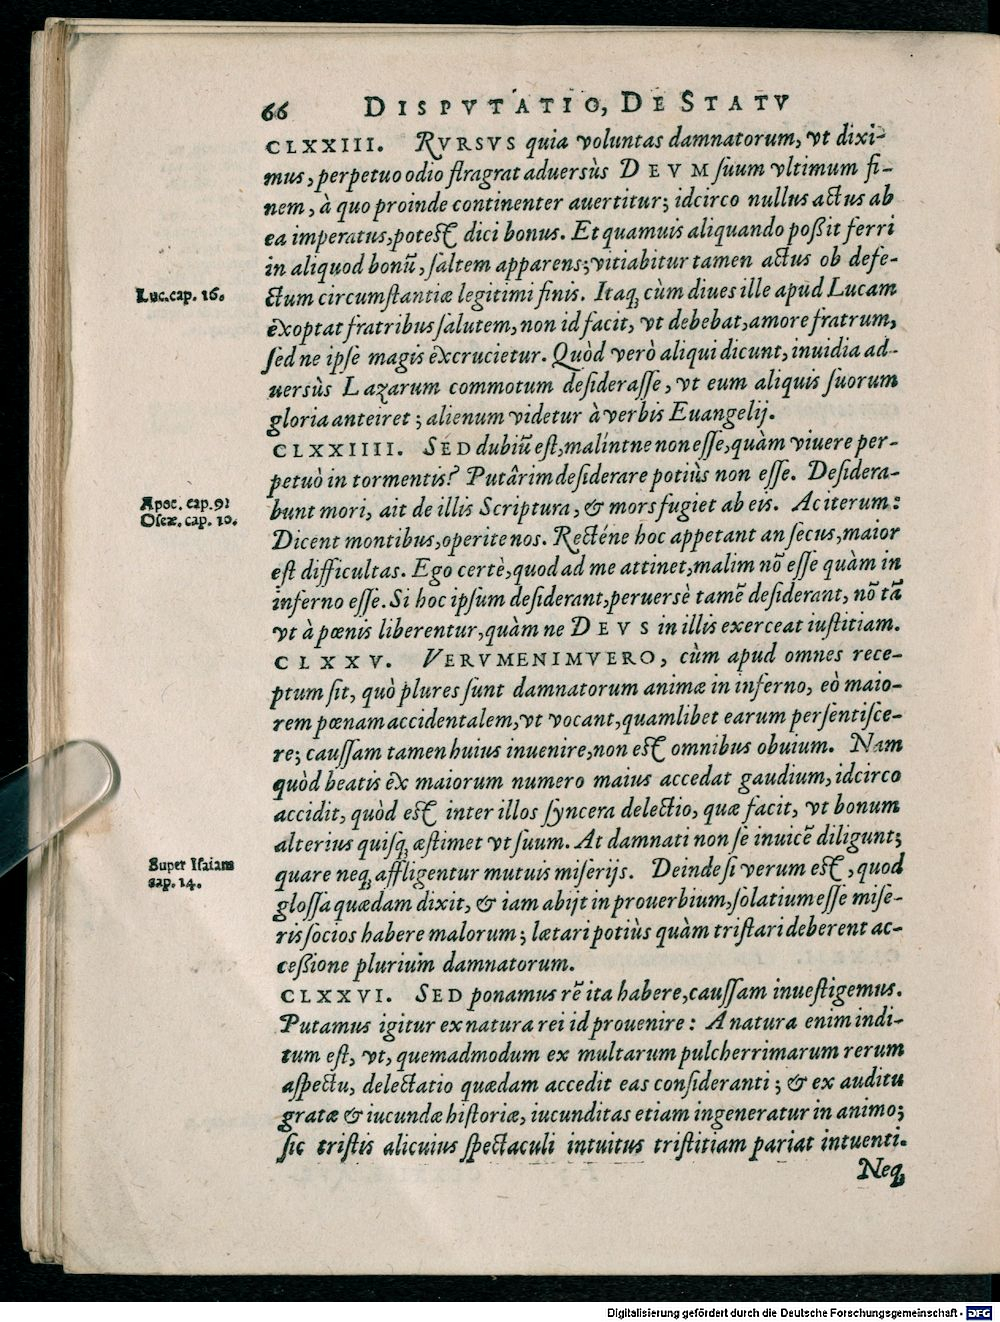 66 DISPVTATIO, DE STATV
CLXXIII. RVRSVS quia voluntas damnatorum, vt dixi-
mus, perpetuo odio flragrat aduersùs DEVM suum vltimum fi-
nem, à quo proinde continenter auertitur; idcirco nullus actus ab
ea imperatus, potest dici bonus. Et quamuis aliquando poßit ferri
in aliquod bonū, saltem apparens; vitiabitur tamen actus ob defe-
Luc. cap. 16.
ctum circumstantiæ legitimi finis. Itaq; cùm diues ille apud Lucam
exoptat fratribus salutem, non id facit, vt debebat, amore fratrum,
sed ne ipse magis excrucietur. Quòd verò aliqui dicunt, inuidia ad-
uersùs Lazarum commotum desiderasse, vt eum aliquis suorum
gloria anteiret; alienum videtur à verbis Euangelij.
CLXXIIII. SED dubiū est, malintne non esse, quàm viuere per-
petuò in tormentis? Putârim desiderare potiùs non esse. Desidera-
Apoc. cap. 9;
bunt mori, ait de illis Scriptura, & mors fugiet ab eis. Ac iterum:
Oseæ. cap. 10.
Dicent montibus, operite nos. Recténe hoc appetant an secus, maior
est difficultas. Ego certè, quod ad me attinet, malim nō esse quàm in
inferno esse. Si hoc ipsum desiderant, peruersè tamē desiderant, nō tā
vt à pœnis liberentur, quàm ne DEVS in illis exerceat iustitiam.
CLXXV. VERVMENIMVERO, cùm apud omnes rece-
ptum sit, quò plures sunt damnatorum animæ in inferno, eò maio-
rem pœnam accidentalem, vt vocant, quamlibet earum persentisce-
re; caussam tamen huius inuenire, non est omnibus obuium. Nam
quòd beatis ex maiorum numero maius accedat gaudium, idcirco
accidit, quòd est inter illos syncera delectio, quæ facit, vt bonum
alterius quisq; æstimet vt suum. At damnati non se inuicē diligunt;
Super Isaiam
quare neq; affligentur mutuis miserijs. Deinde si verum est, quod
cap. 14.
glossa quædam dixit, & iam abijt in prouerbium, solatium esse mise-
ris socios habere malorum; lætari potiùs quàm tristari deberent ac-
ceßione plurium damnatorum.
CLXXVI. SED ponamus rē ita habere, caussam inuestigemus.
Putamus igitur ex natura rei id prouenire: A natura enim indi-
tum est, vt, quemadmodum ex multarum pulcherrimarum rerum
aspectu, delectatio quædam accedit eas consideranti; & ex auditu
gratæ & iucundæ historiæ, iucunditas etiam ingeneratur in animo;
sic tristis alicuius spectaculi intuitus tristitiam pariat intuenti.
Neq;
Digitalisierung gefördert durch die Deutsche Forschungsgemeinschaft - DFG